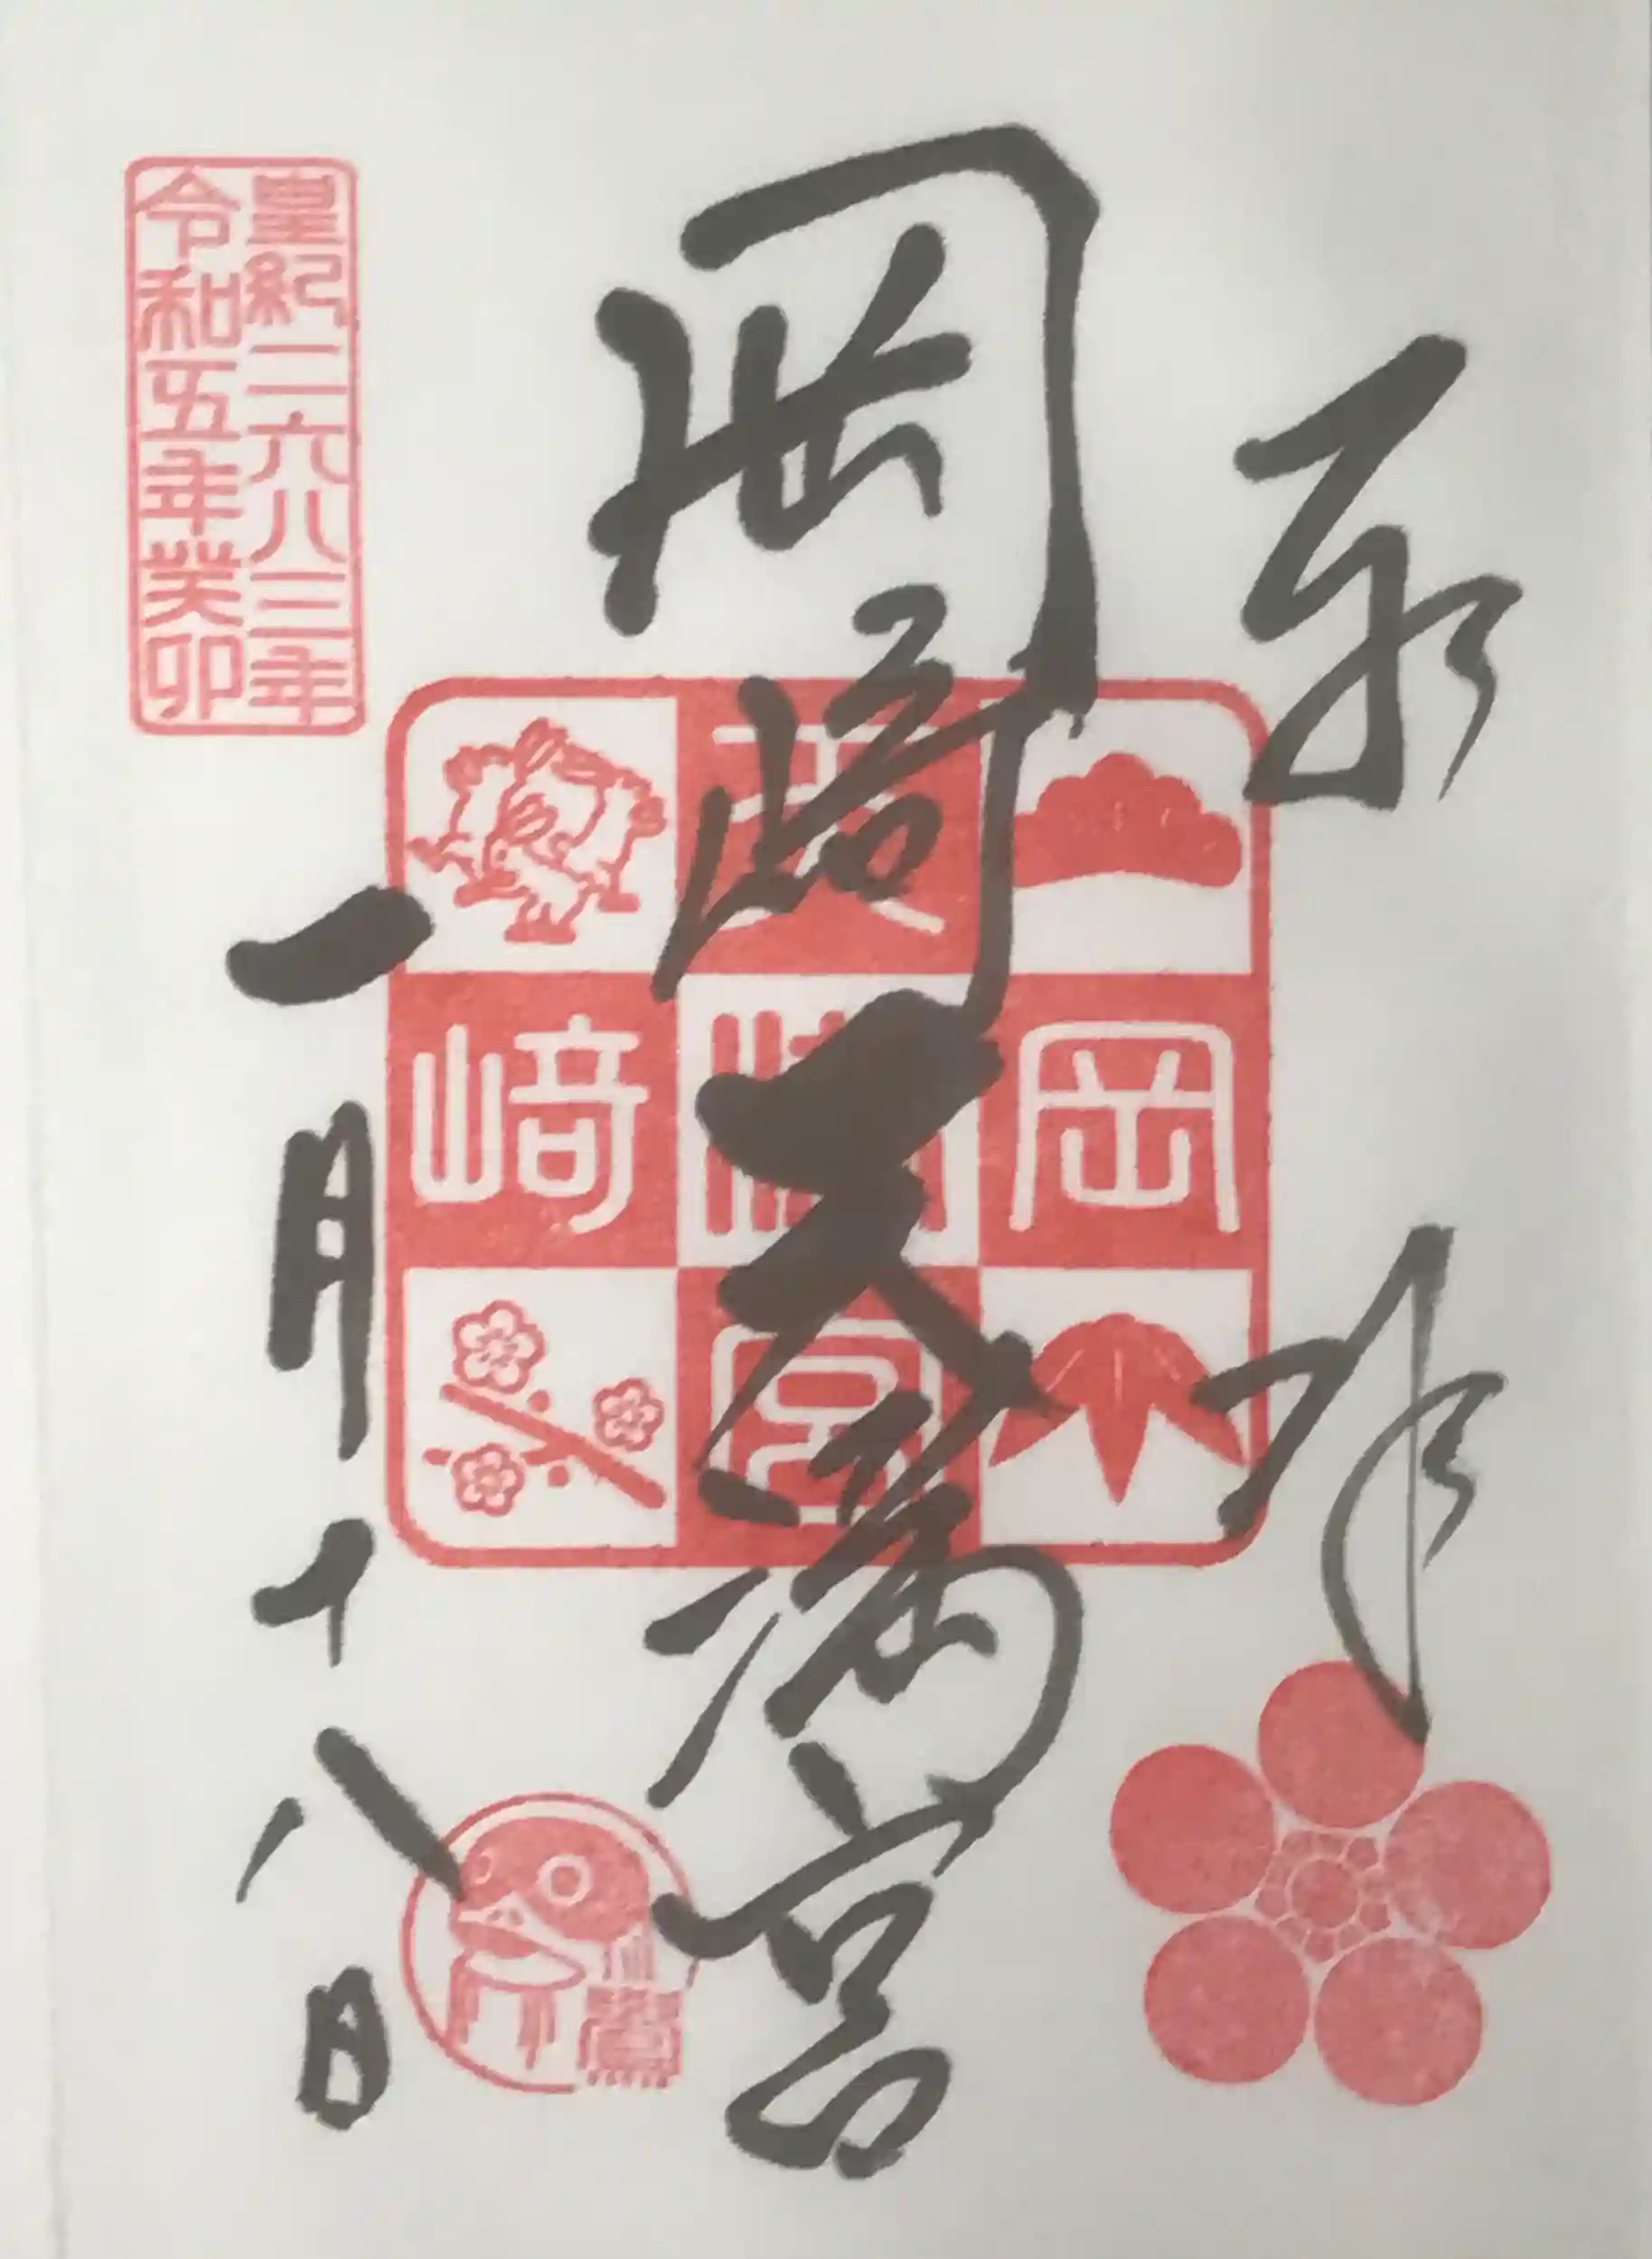 奉拝
岡﨑天満宮
一月十八日
皇紀二六八三年
令和五年癸卯
岡
天
宮
﨑